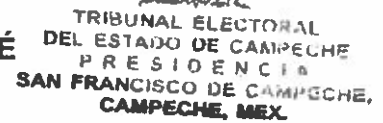 TRIBUNAL ELECTORAL
É DEL ESTADO DE CAMPECHE
PRESIDENCIA
SAN FRANCISCO DE CAMPECHE,
CAMPECHE, MEX.